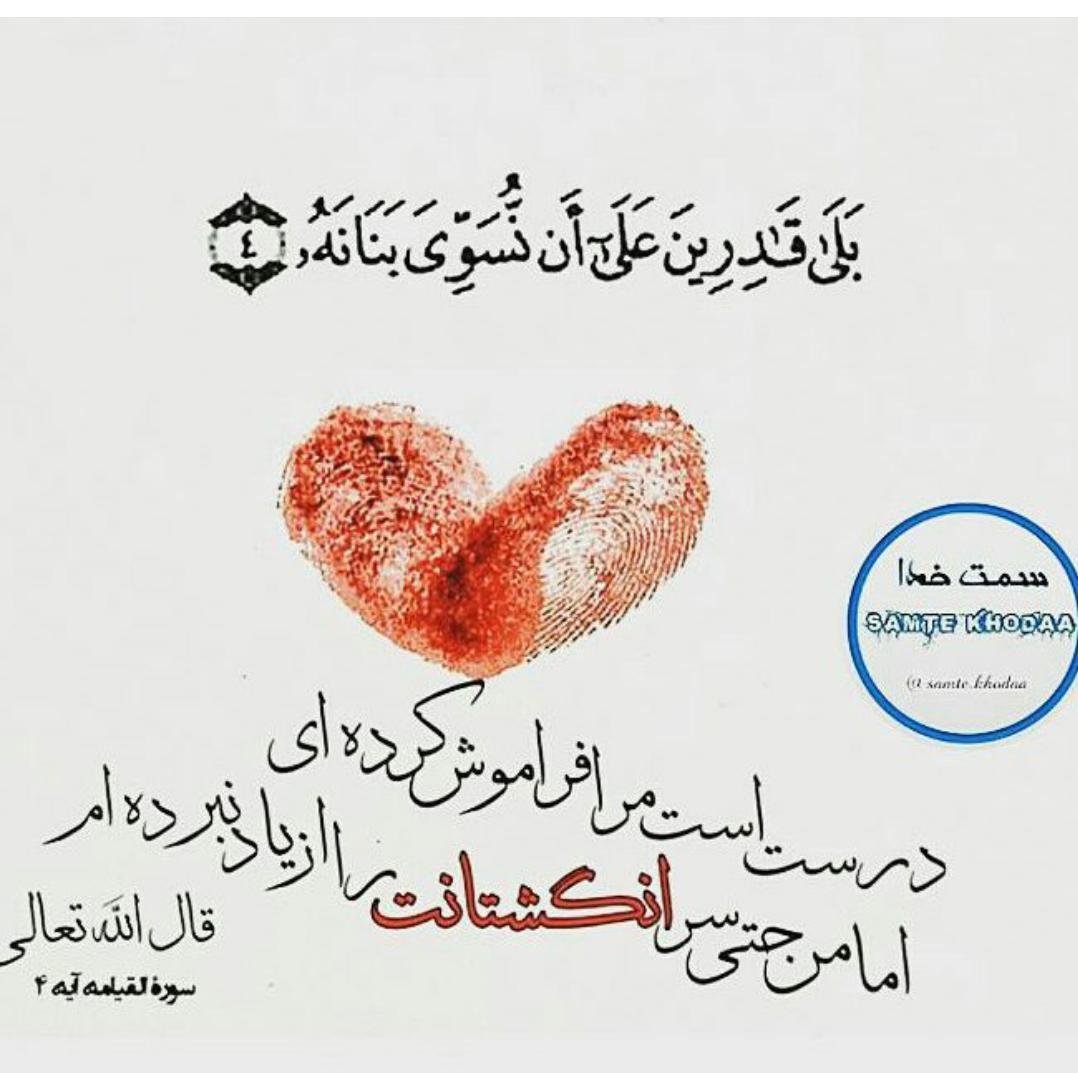 بَلَىٰ قَٰدِرِينَ عَلَىٰٓ أَن نُّسَوِّىَ بَنَانَهُۥ ٤
سمت خدا
SAMTE KHODAA
@samte.khodaa
درست است مرا فراموش کرده ای
اما من حتی سر انگشتانت را از یاد نبرده ام
قال الله تعالی
سورة القیامه آیه ۴